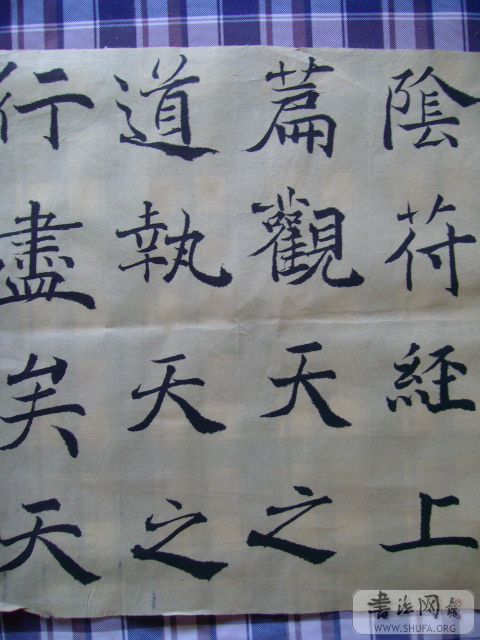 陰符經上
篇觀天之
道執天之
行盡矣天
書法网
WWW.SHUFA.ORG